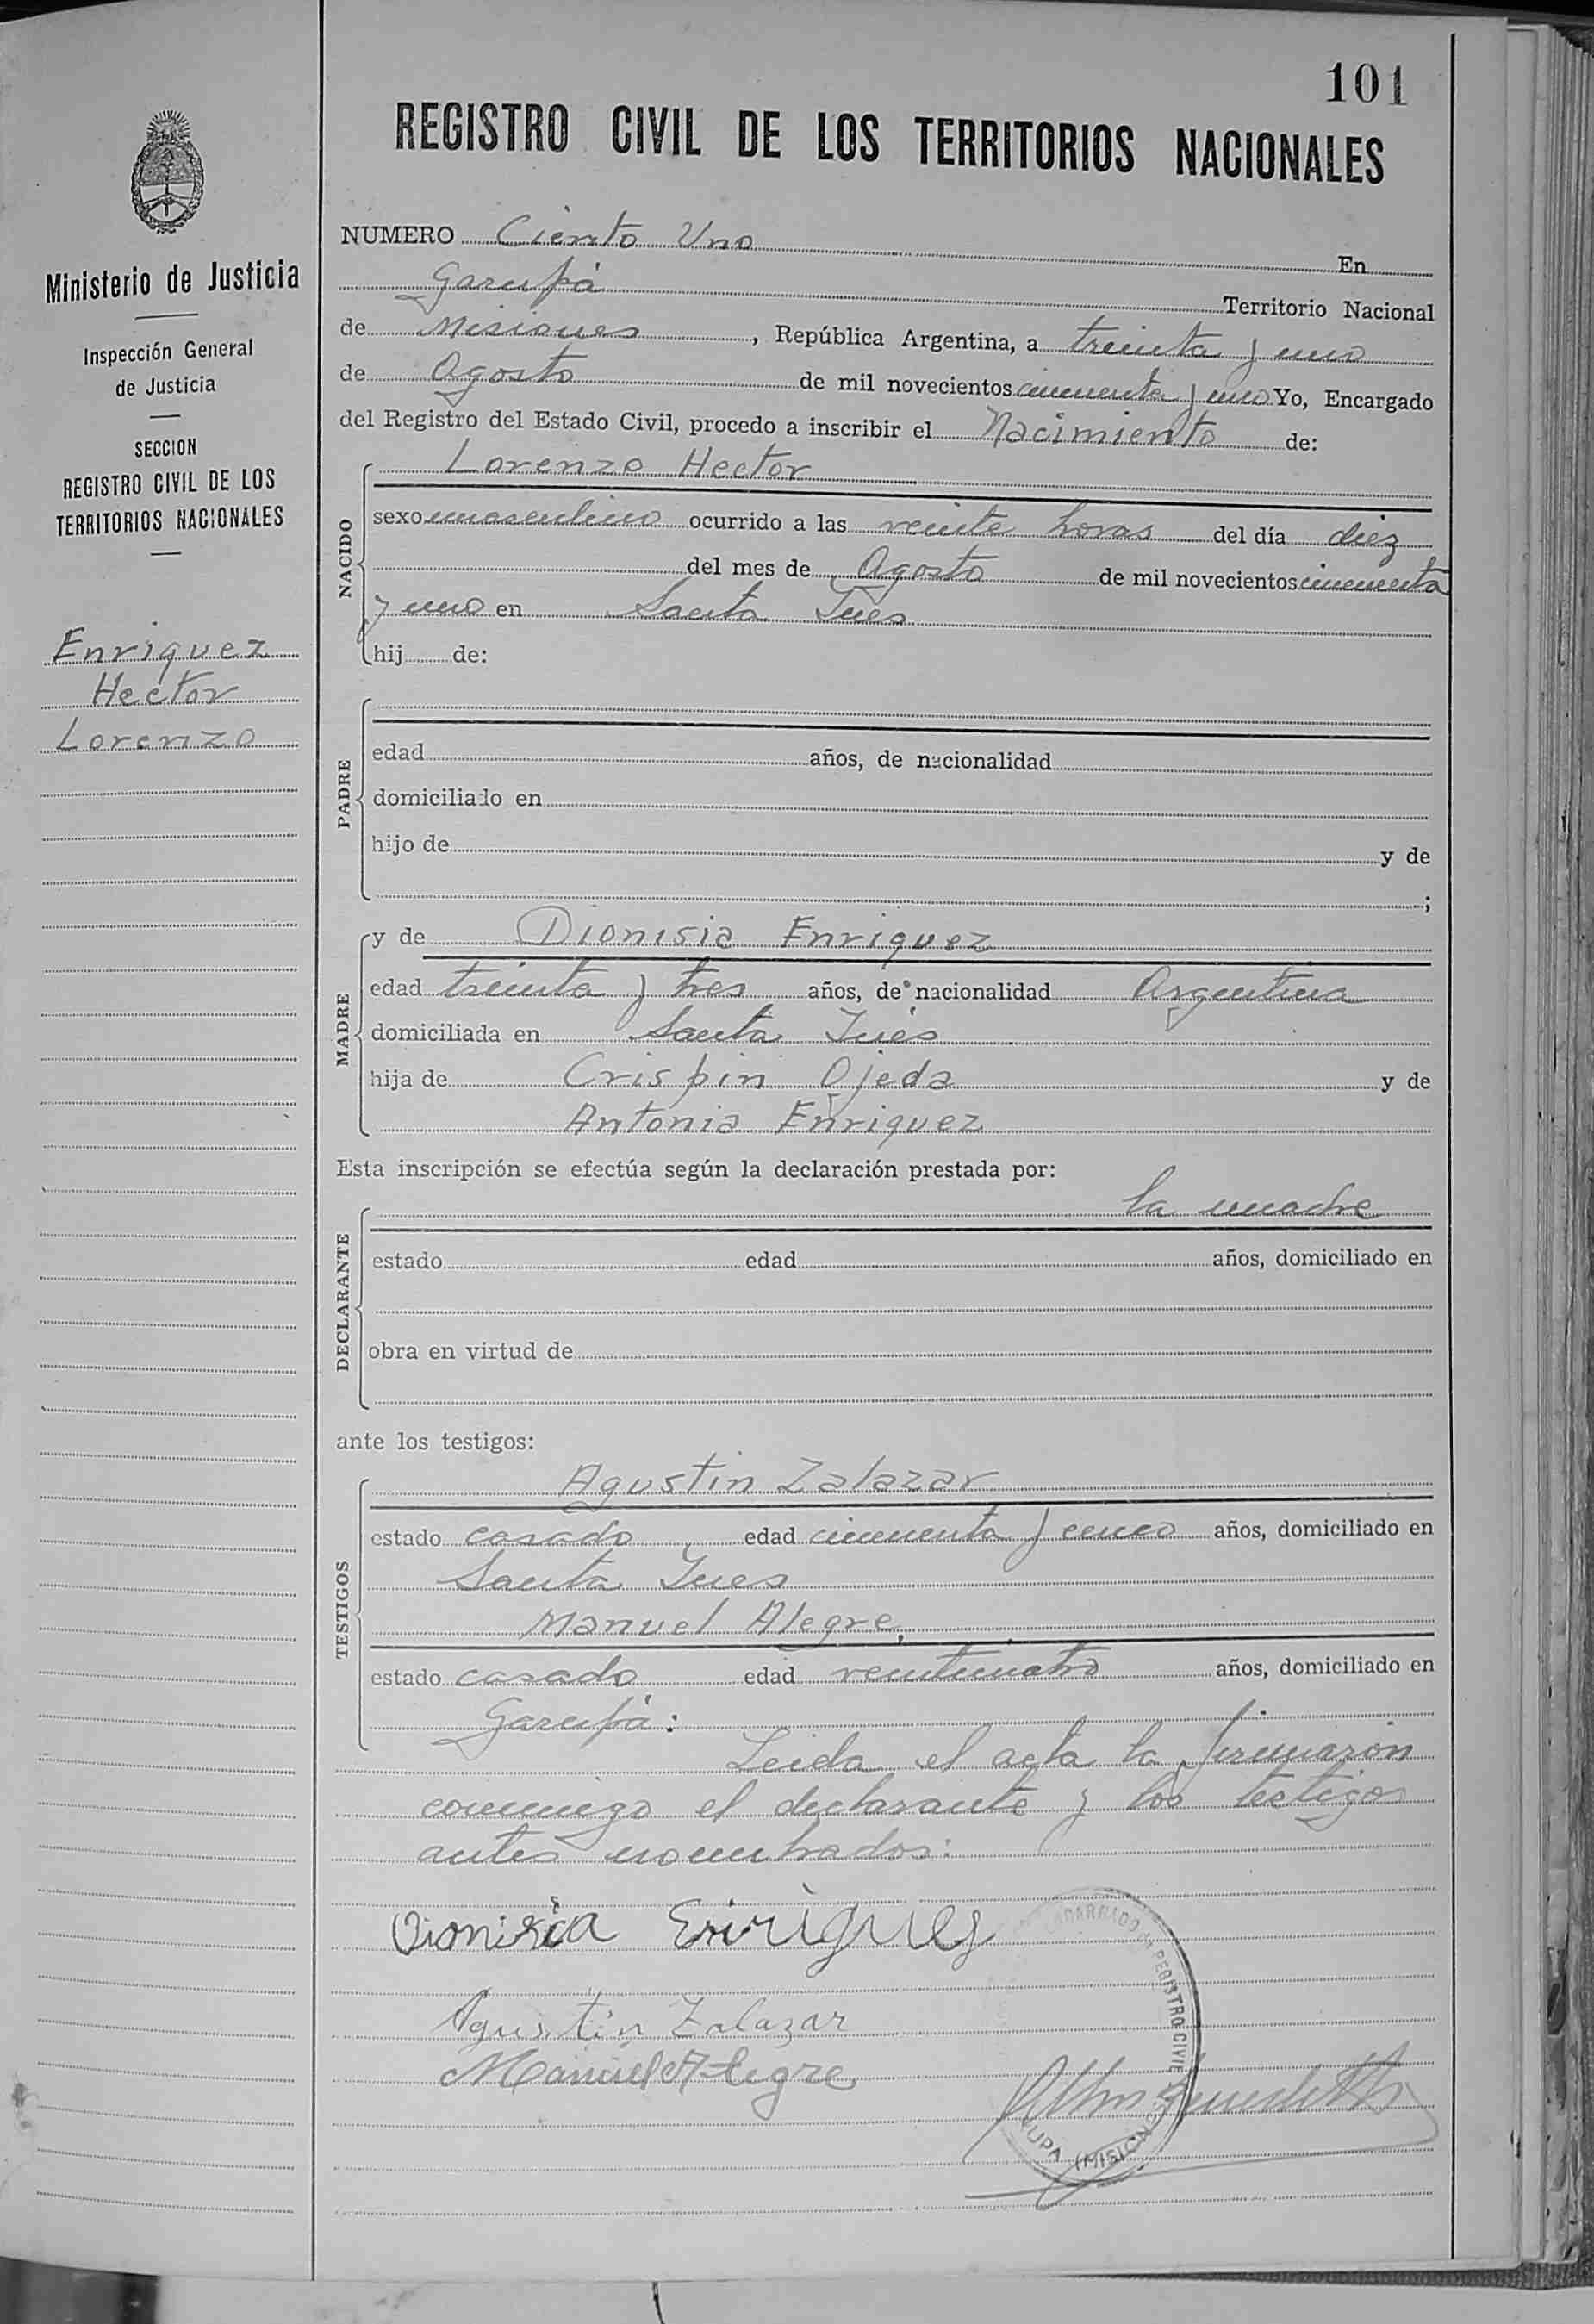 101
REGISTRO CIVIL DE LOS TERRITORIOS NACIONALES
Ministerio de Justicia
Inspección General
de Justicia
SECCION
REGISTRO CIVIL DE LOS
TERRITORIOS NACIONALES
Enriquez
Hector
Lorenzo
NUMERO Ciento Uno En
Garupá Territorio Nacional
de Misiones, República Argentina, a treinta y uno
de Agosto de mil novecientos cincuenta y uno Yo, Encargado
del Registro del Estado Civil, procedo a inscribir el Nacimiento de:
NACIDO
Lorenzo Hector
sexo masculino ocurrido a las veinte horas del día diez
del mes de Agosto de mil novecientos cincuenta
y uno en Santa Inés
hij de:
PADRE
edad años, de nacionalidad
domiciliado en
hijo de y de
;
MADRE
y de Dionisia Enriquez
edad treinta y tres años, de nacionalidad Argentina
domiciliada en Santa Inés
hija de Crispin Ojeda y de
Antonia Enriquez
Esta inscripción se efectúa según la declaración prestada por:
DECLARANTE
la madre
estado edad años, domiciliado en
obra en virtud de
ante los testigos:
TESTIGOS
Agustin Zalazar
estado casado edad cincuenta y cinco años, domiciliado en
Santa Ines
Manuel Alegre.
estado casado edad veinticuatro años, domiciliado en
Garupá:
Leida el acta la firmaron
conmigo el declarante y los testigos
antes nombrados:
Dionisia Enriquez
Agustin Zalazar
Manuel Alegre
ENCARGADO REGISTRO CIVIL